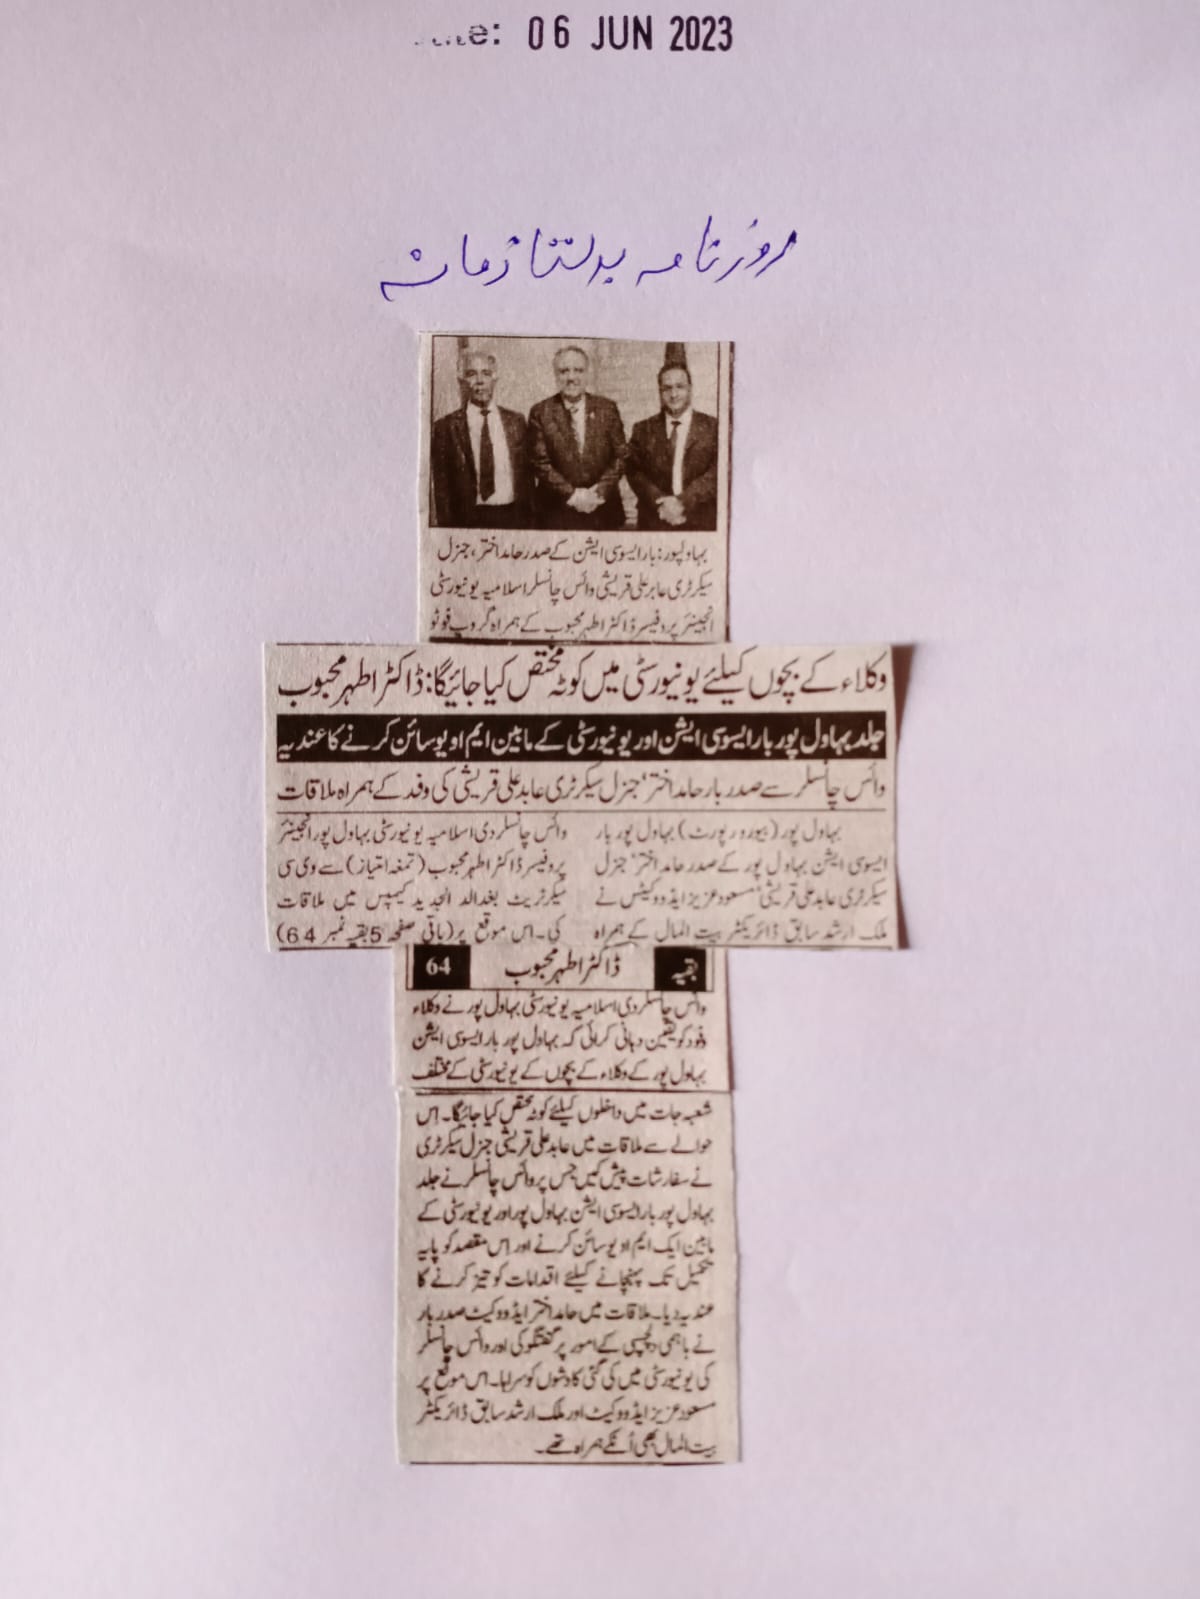 Date: 06 JUN 2023
روزنامہ بدلتا زمانہ
بہاولپور: بار ایسوسی ایشن کے صدر حامد اختر، جنرل
سیکرٹری عابد علی قریشی وائس چانسلر اسلامیہ یونیورسٹی
انجینئر پروفیسر ڈاکٹر اطہر محبوب کے ہمراہ گروپ فوٹو
وکلاء کے بچوں کیلئے یونیورسٹی میں کوٹہ مختص کیا جائیگا: ڈاکٹر اطہر محبوب
جلد بہاول پور بار ایسوسی ایشن اور یونیورسٹی کے مابین ایم او یو سائن کرنے کا عندیہ
وائس چانسلر سے صدر بار حامد اختر، جنرل سیکرٹری عابد علی قریشی کی وفد کے ہمراہ ملاقات
بہاول پور (بیورو رپورٹ) بہاول پور بار
ایسوسی ایشن بہاول پور کے صدر حامد اختر، جنرل
سیکرٹری عابد علی قریشی، مسعود عزیز ایڈووکیٹس نے
ملک ارشد سابق ڈائریکٹر بیت المال کے ہمراہ
وائس چانسلر دی اسلامیہ یونیورسٹی بہاول پور انجینئر
پروفیسر ڈاکٹر اطہر محبوب (تمغہ امتیاز) سے وی سی
سیکرٹریٹ بغداد الجدید کیمپس میں ملاقات
کی۔ اس موقع پر (باقی صفحہ 5 بقیہ نمبر 64)
بقیہ ڈاکٹر اطہر محبوب 64
وائس چانسلر دی اسلامیہ یونیورسٹی بہاول پور نے وکلاء
وفد کو یقین دہانی کرائی کہ بہاول پور بار ایسوسی ایشن
بہاول پور کے وکلاء کے بچوں کے یونیورسٹی کے مختلف
شعبہ جات میں داخلوں کیلئے کوٹہ مختص کیا جائیگا۔ اس
حوالے سے ملاقات میں عابد علی قریشی جنرل سیکرٹری
نے سفارشات پیش کیں جس پر وائس چانسلر نے جلد
بہاول پور بار ایسوسی ایشن بہاول پور اور یونیورسٹی کے
مابین ایک ایم او یو سائن کرنے اور اس مقصد کو پایہ
تکمیل تک پہنچانے کیلئے اقدامات کو تیز کرنے کا
عندیہ دیا۔ ملاقات میں حامد اختر ایڈووکیٹ صدر بار
نے باہمی دلچسپی کے امور پر گفتگو کی اور وائس چانسلر
کی یونیورسٹی میں کی گئی کاوشوں کو سراہا۔ اس موقع پر
مسعود عزیز ایڈووکیٹ اور ملک ارشد سابق ڈائریکٹر
بیت المال بھی اُنکے ہمراہ تھے۔